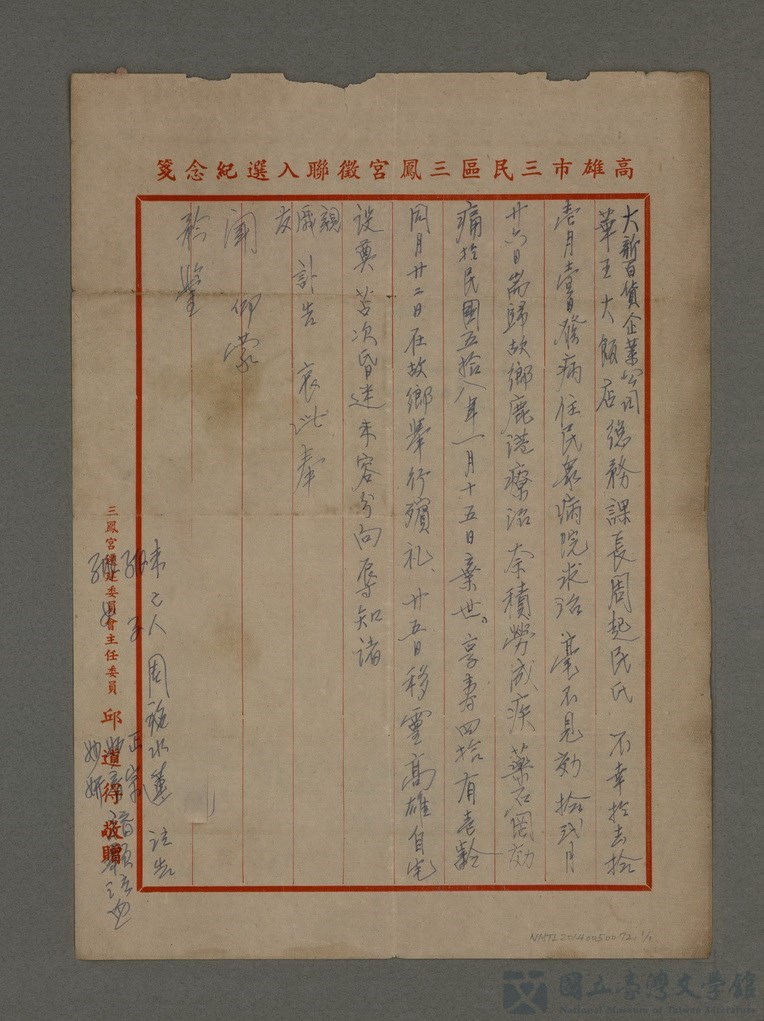 高雄市三民區三鳳宮徵聯入選紀念箋
大新百貨企業公司
華王大飯店
總務課長周起民氏 不幸於去拾
壹月壹日發病住民眾病院求治 毫不見効 拾弍月
廿六日耑歸故鄉鹿港療治 奈積勞成疾 藥石罔効
痛於民國五拾八年一月十五日棄世。享壽四拾有壹齡
同月廿二日在故鄉舉行殯礼、廿五日移靈高雄自宅
設奠 苫次昏迷 未容分向辱知諸
親戚友
訃告 哀此奉
聞 仰蒙
矜鑒
未亡人 周 泣告
孤子 正宗
孤女
三鳳宮建委員會主任委員 邱道得 敬贈
NMTL20140050072-1/1
國立臺灣文學館
National Museum of Taiwan Literature